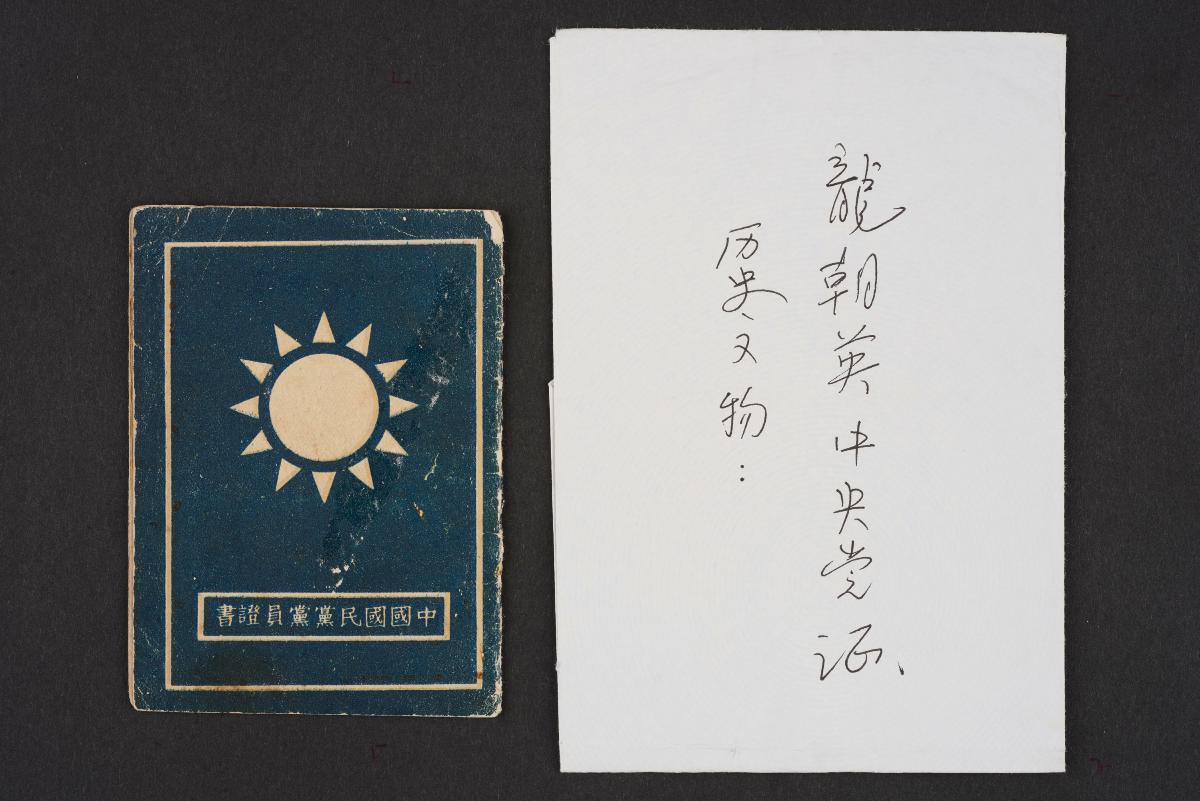 中國國民黨黨員證書
龍朝英中央党证、
历史文物：